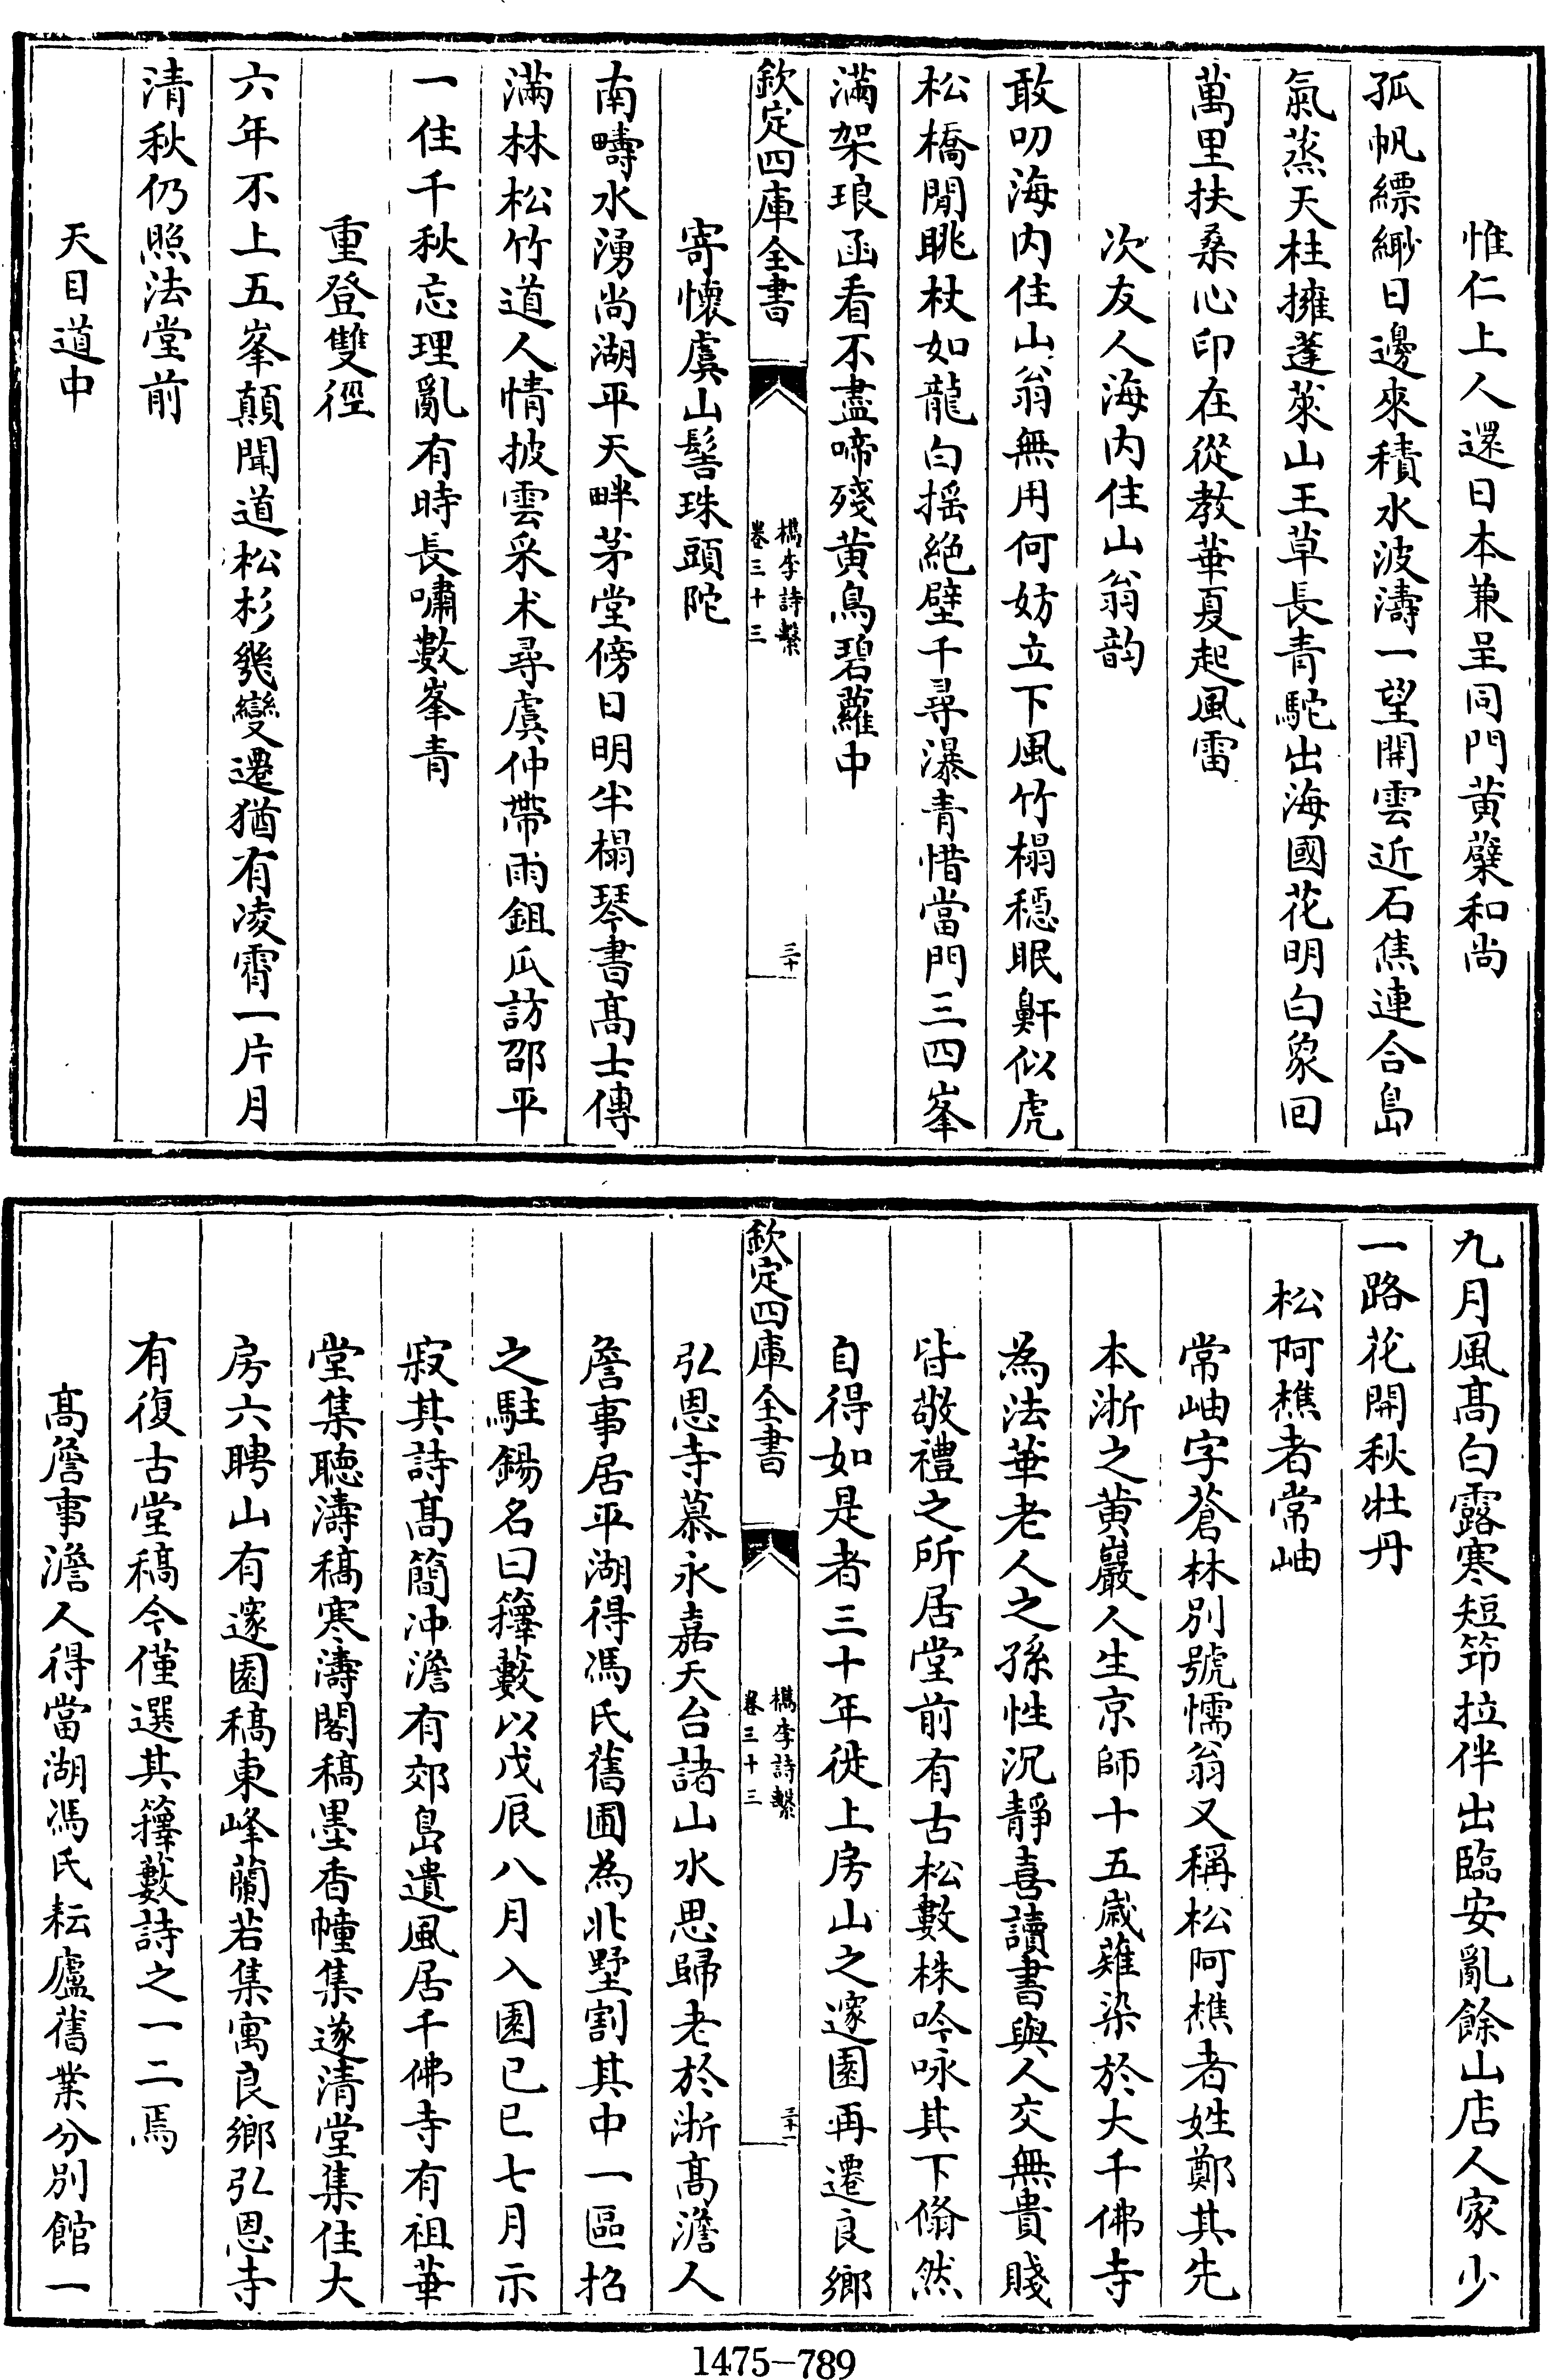 惟仁上人還日本兼呈同門黄蘗和尚
孤帆縹緲日邊來積水波濤一望開雲近石焦連合島
氣蒸天柱擁蓬萊山王草長青駝出海國花明白象回
萬里扶桑心印在從教華夏起風雷
次友人海内住山翁韵
敢叨海内住山翁無用何妨立下風竹榻穩眠鼾似虎
松橋閒眺杖如龍白摇絶壁千尋瀑青惜當門三四峯
滿架琅函看不盡啼殘黄鳥碧蘿中
欽定四庫全書
檇李詩繫
卷三十三
三十
寄懷虞山髻珠頭陀
南疇水湧尚湖平天畔茅堂傍日明半榻琴書髙士傳
滿林松竹道人情披雲采术尋虞仲帶雨鉏瓜訪邵平
一住千秋忘理亂有時長嘯數峯青
重登雙徑
六年不上五峯顛聞道松杉幾變遷猶有凌霄一片月
清秋仍照法堂前
天目道中
九月風髙白露寒短笻拉伴出臨安亂餘山店人家少
一路花開秋牡丹
松阿樵者常岫
常岫字蒼林别號懦翁又稱松阿樵者姓鄭其先
本浙之黄巖人生京師十五歲薙染於大千佛寺
為法華老人之孫性沉靜喜讀書與人交無貴賤
皆敬禮之所居堂前有古松數株吟咏其下翛然
自得如是者三十年徙上房山之邃園再遷良鄉
欽定四庫全書
檇李詩繫
卷三十三
三十一
弘恩寺慕永嘉天台諸山水思歸老於浙髙澹人
詹事居平湖得馮氏舊圃為北墅割其中一區招
之駐錫名曰籜藪以戊辰八月入園已巳七月示
寂其詩髙簡沖澹有郊島遺風居千佛寺有祖華
堂集聽濤稿寒濤閣稿墨香幢集遂清堂集住大
房六聘山有邃園稿東峰蘭若集寓良鄉弘恩寺
有復古堂稿今僅選其籜藪詩之一二焉
髙詹事澹人得當湖馮氏耘廬舊業分别館一
1475-789